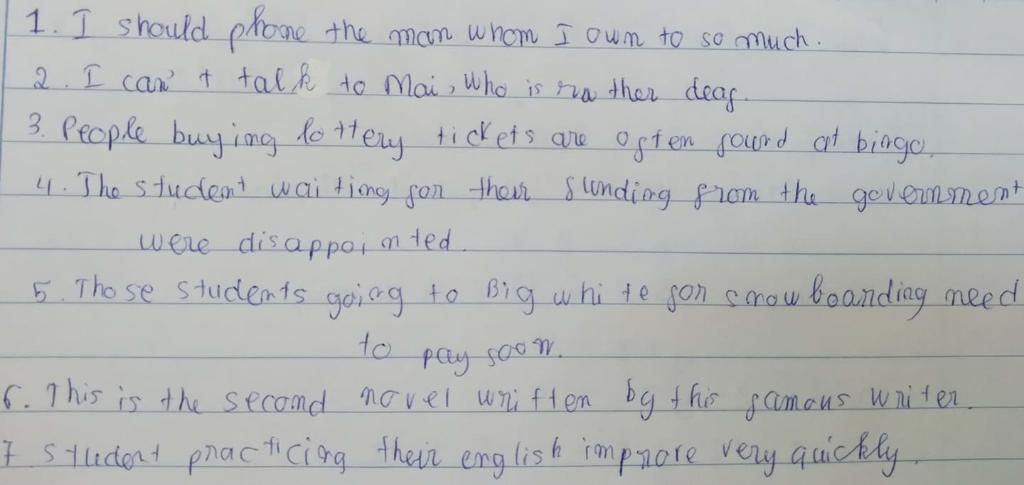 1. I should phone the man whom I own to so much.
2. I can't talk to Mai, who is rather deaf.
3. People buying lottery tickets are often found at bingo.
4. The student waiting for their funding from the government
were disappointed.
5. Those students going to Big white for snowboarding need
to pay soon.
6. This is the second novel written by this famous writer.
7 Student practicing their english improve very quickly.